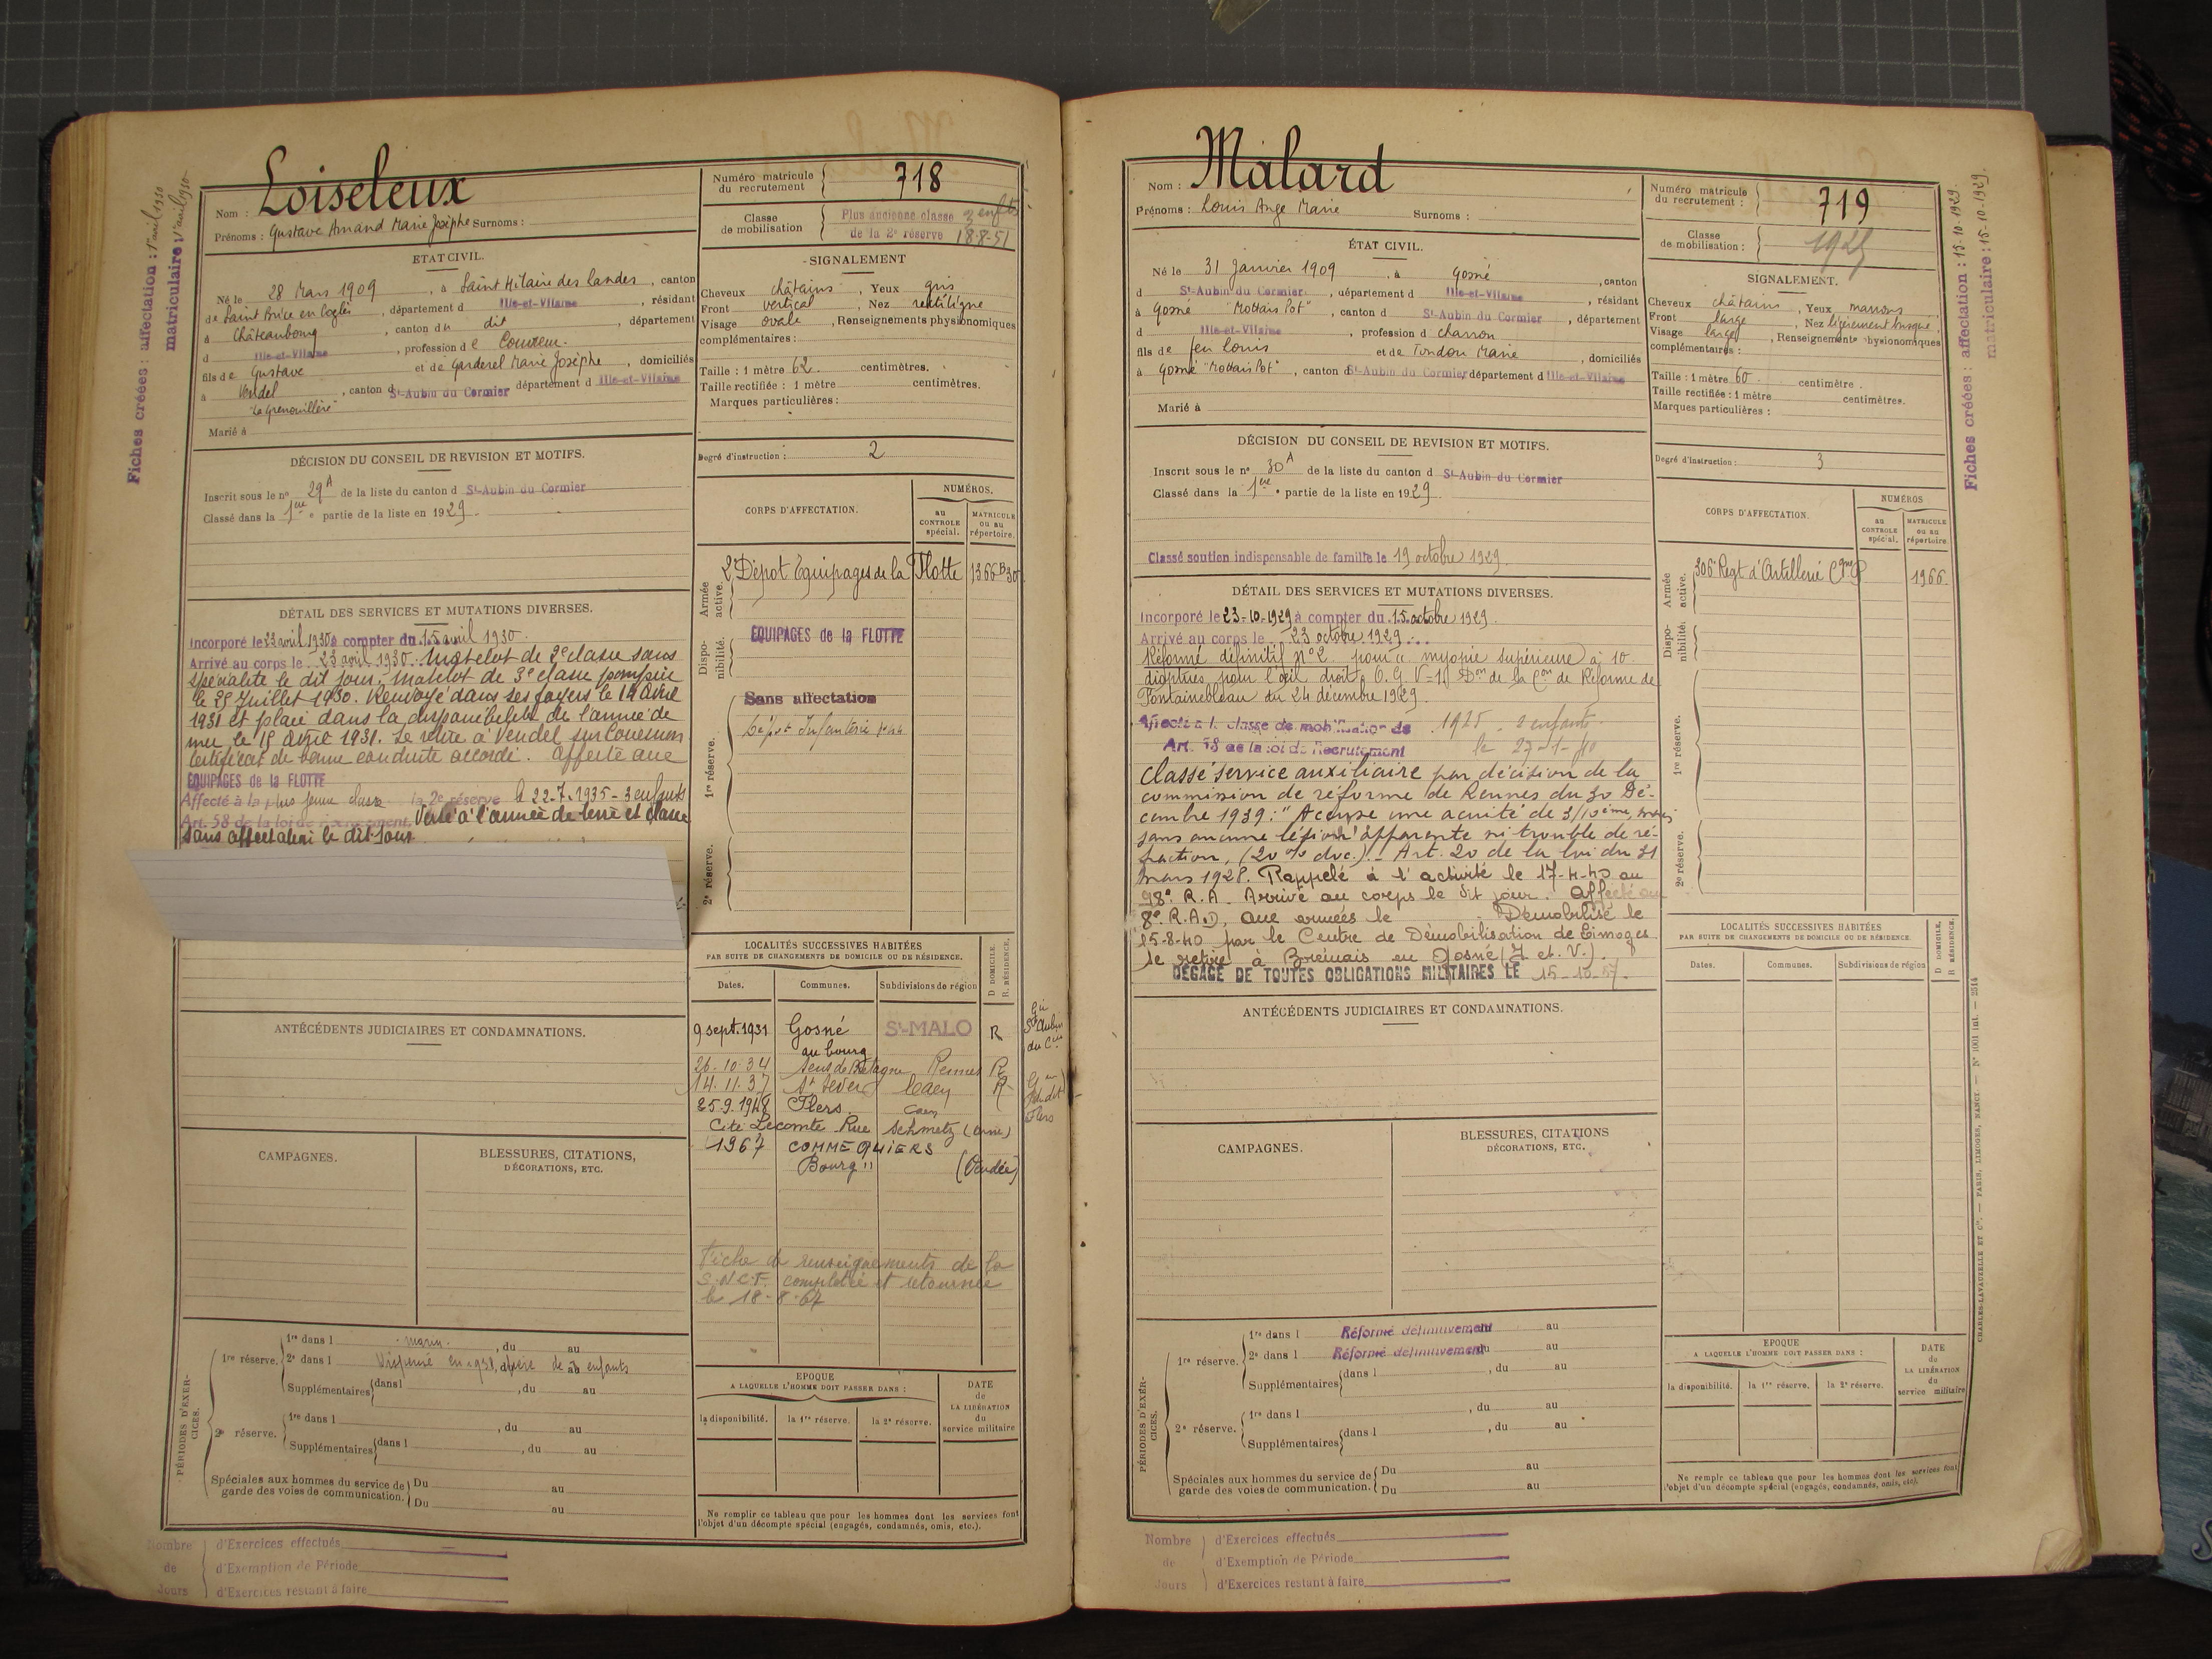 Fiches créées : affectation : 1er avril 1930
matriculaire : 1er avril 1930
Nom : Loiseleux
Prénoms : Gustave Amand Marie Josèphe Surnoms :
ÉTAT CIVIL.
Né le 28 Mars 1909, à Saint Hilaire des Landes, canton
de Saint Brice en Coglès, département d Ille-et-Vilaine, résidant
à Châteaubourg, canton du dit, département
d Ille-et-Vilaine, profession de Couvreur.
fils de Gustave et de Garderel Marie Josèphe, domiciliés
à Vendel, canton d St-Aubin du Cormier département d Ille-et-Vilaine
"La Grenouillère"
Marié à
DÉCISION DU CONSEIL DE REVISION ET MOTIFS.
Inscrit sous le n° 29A de la liste du canton d St-Aubin du Cormier
Classé dans la 1ère partie de la liste en 1929.
DÉTAIL DES SERVICES ET MUTATIONS DIVERSES.
Incorporé le 23 avril 1930 à compter du 15 avril 1930.
Arrivé au corps le 23 avril 1930. Matelot de 2e classe sans
spécialité le dit jour. Matelot de 3e classe pompier
le 25 Juillet 1930. Renvoyé dans ses foyers le 14 Avril
1931 et placé dans la disponibilité de l'armée de
mer le 15 Avril 1931. Se retire à Vendel sur Couesnon
Certificat de bonne conduite accordé. Affecté aux
EQUIPAGES de la FLOTTE
Affecté à la plus jeune classe la 2e réserve le 22-7-1935 - 3 enfants
Art. 58 de la loi de recrutement. Versé à l'armée de terre et classé
sans affectation le dit jour
ANTÉCÉDENTS JUDICIAIRES ET CONDAMNATIONS.
CAMPAGNES.
BLESSURES, CITATIONS,
DÉCORATIONS, ETC.
PÉRIODES D'EXERCICES.
1re réserve.
1re dans l marin, du au
2e dans l Dispensé en 1938, père de enfants
Supplémentaires dans l , du au
2e réserve.
1re dans l , du au
Supplémentaires dans l , du au
Spéciales aux hommes du service de garde des voies de communication. Du au
Du au
Nombre de Jours
d'Exercices effectués
d'Exemption de Période
d'Exercices restant à faire
Numéro matricule du recrutement 718
Classe de mobilisation
Plus ancienne classe 3 enfts
de la 2e réserve 18-8-51
SIGNALEMENT
Cheveux châtains, Yeux gris
Front vertical, Nez rectiligne
Visage ovale, Renseignements physionomiques
complémentaires :
Taille : 1 mètre 62 centimètres.
Taille rectifiée : 1 mètre centimètres.
Marques particulières :
Degré d'instruction : 2
CORPS D'AFFECTATION.
NUMÉROS.
au CONTROLE spécial.
MATRICULE ou au répertoire.
Armée active.
2e Dépot Equipages de la Flotte 1366 B 30
Disponibilité.
EQUIPAGES de la FLOTTE
1re réserve.
Sans affectation
Dépot Infanterie n°44
2e réserve.
LOCALITÉS SUCCESSIVES HABITÉES
PAR SUITE DE CHANGEMENTS DE DOMICILE OU DE RÉSIDENCE.
Dates. Communes. Subdivisions de région D. DOMICILE. R. RÉSIDENCE.
9 sept. 1931 Gosné St-MALO R
au bourg
26.10.34 Sens de Bretagne Rennes R
14.11.37 St Sever Caen R
25.9.1948 Flers Caen
Cité Lecomte Rue Schmetz (Orne)
1967 COMMEQUIERS
Bourg (Vendée)
Fiche de renseignements de la
S.N.C.F. complétée et retournée
le 18-8-67
EPOQUE
A LAQUELLE L'HOMME DOIT PASSER DANS :
la disponibilité. la 1re réserve. la 2e réserve.
DATE de LA LIBÉRATION du service militaire
Ne remplir ce tableau que pour les hommes dont les services font
l'objet d'un décompte spécial (engagés, condamnés, omis, etc.).
Nom : Malard
Prénoms : Louis Ange Marie Surnoms :
ÉTAT CIVIL.
Né le 31 Janvier 1909, à Gosné, canton
d St-Aubin du Cormier, département d Ille-et-Vilaine, résidant
à Gosné "Mottais Pot", canton d St-Aubin du Cormier, département
d Ille-et-Vilaine, profession d charron
fils de feu Louis et de Tondou Marie, domiciliés
à Gosné "Mottais Pot", canton d St-Aubin du Cormier département d Ille-et-Vilaine
Marié à
DÉCISION DU CONSEIL DE REVISION ET MOTIFS.
Inscrit sous le n° 30A de la liste du canton d St-Aubin du Cormier
Classé dans la 1ère partie de la liste en 1929.
Classé soutien indispensable de famille le 19 octobre 1929.
DÉTAIL DES SERVICES ET MUTATIONS DIVERSES.
Incorporé le 23-10-1929 à compter du 15 octobre 1929.
Arrivé au corps le 23 octobre 1929.
Réformé définitif n°2 pour "myopie supérieure à 10
dioptries pour l'œil droit. O.G. V=1/ Don de la Con de Réforme de
Fontainebleau du 24 décembre 1929.
Affecté à la classe de mobilisation de 1925 - 2 enfants
Art. 58 de la loi de Recrutement le 27-1-40
Classé service auxiliaire par décision de la
commission de réforme de Rennes du 30 Dé-
cembre 1939 : "Accuse une acuité de 3/10ème, mais
sans aucune lésion apparente ni trouble de ré-
fraction, (20% duc.). - Art. 20 de la loi du 31
mars 1928. Rappelé à l'activité le 17-4-40 au
98e R.A. Arrivé au corps le dit jour. Affecté au
8e R.A.D. aux armées le Démobilisé le
15-8-40 par le Centre de Démobilisation de Limoges
se retire à en Gosné (I. et. V.).
DÉGAGÉ DE TOUTES OBLIGATIONS MILITAIRES LE 15-10-57.
ANTÉCÉDENTS JUDICIAIRES ET CONDAMNATIONS.
CAMPAGNES.
BLESSURES, CITATIONS
DÉCORATIONS, ETC.
PÉRIODES D'EXERCICES.
1re réserve.
1re dans l Réformé définitivement au
2e dans l Réformé définitivement au
Supplémentaires dans l , du au
2e réserve.
1re dans l , du au
Supplémentaires dans l , du au
Spéciales aux hommes du service de garde des voies de communication. Du au
Du au
Nombre de Jours
d'Exercices effectués
d'Exemption de Période
d'Exercices restant à faire
Numéro matricule du recrutement : 719
Classe de mobilisation : 1925
SIGNALEMENT.
Cheveux châtains, Yeux marrons
Front large, Nez légèrement busqué
Visage large, Renseignements physionomiques
complémentaires :
Taille : 1 mètre 60 centimètre.
Taille rectifiée : 1 mètre centimètres.
Marques particulières :
Degré d'instruction : 3
CORPS D'AFFECTATION.
NUMÉROS
au CONTROLE spécial.
MATRICULE ou au répertoire.
Armée active.
306e Regt d'Artillerie 1966
Disponibilité.
1re réserve.
2e réserve.
LOCALITÉS SUCCESSIVES HABITÉES
PAR SUITE DE CHANGEMENTS DE DOMICILE OU DE RÉSIDENCE.
Dates. Communes. Subdivisions de région D DOMICILE. R RÉSIDENCE.
EPOQUE
A LAQUELLE L'HOMME DOIT PASSER DANS :
la disponibilité. la 1re réserve. la 2e réserve.
DATE de LA LIBÉRATION du service militaire
Ne remplir ce tableau que pour les hommes dont les services font
l'objet d'un décompte spécial (engagés, condamnés, omis, etc.).
Fiches créées : affectation : 15-10-1929
matriculaire : 15-10-1929.
CHARLES-LAVAUZELLE ET Cie. — PARIS, LIMOGES, NANCY. — N° 1001 int. — 2514